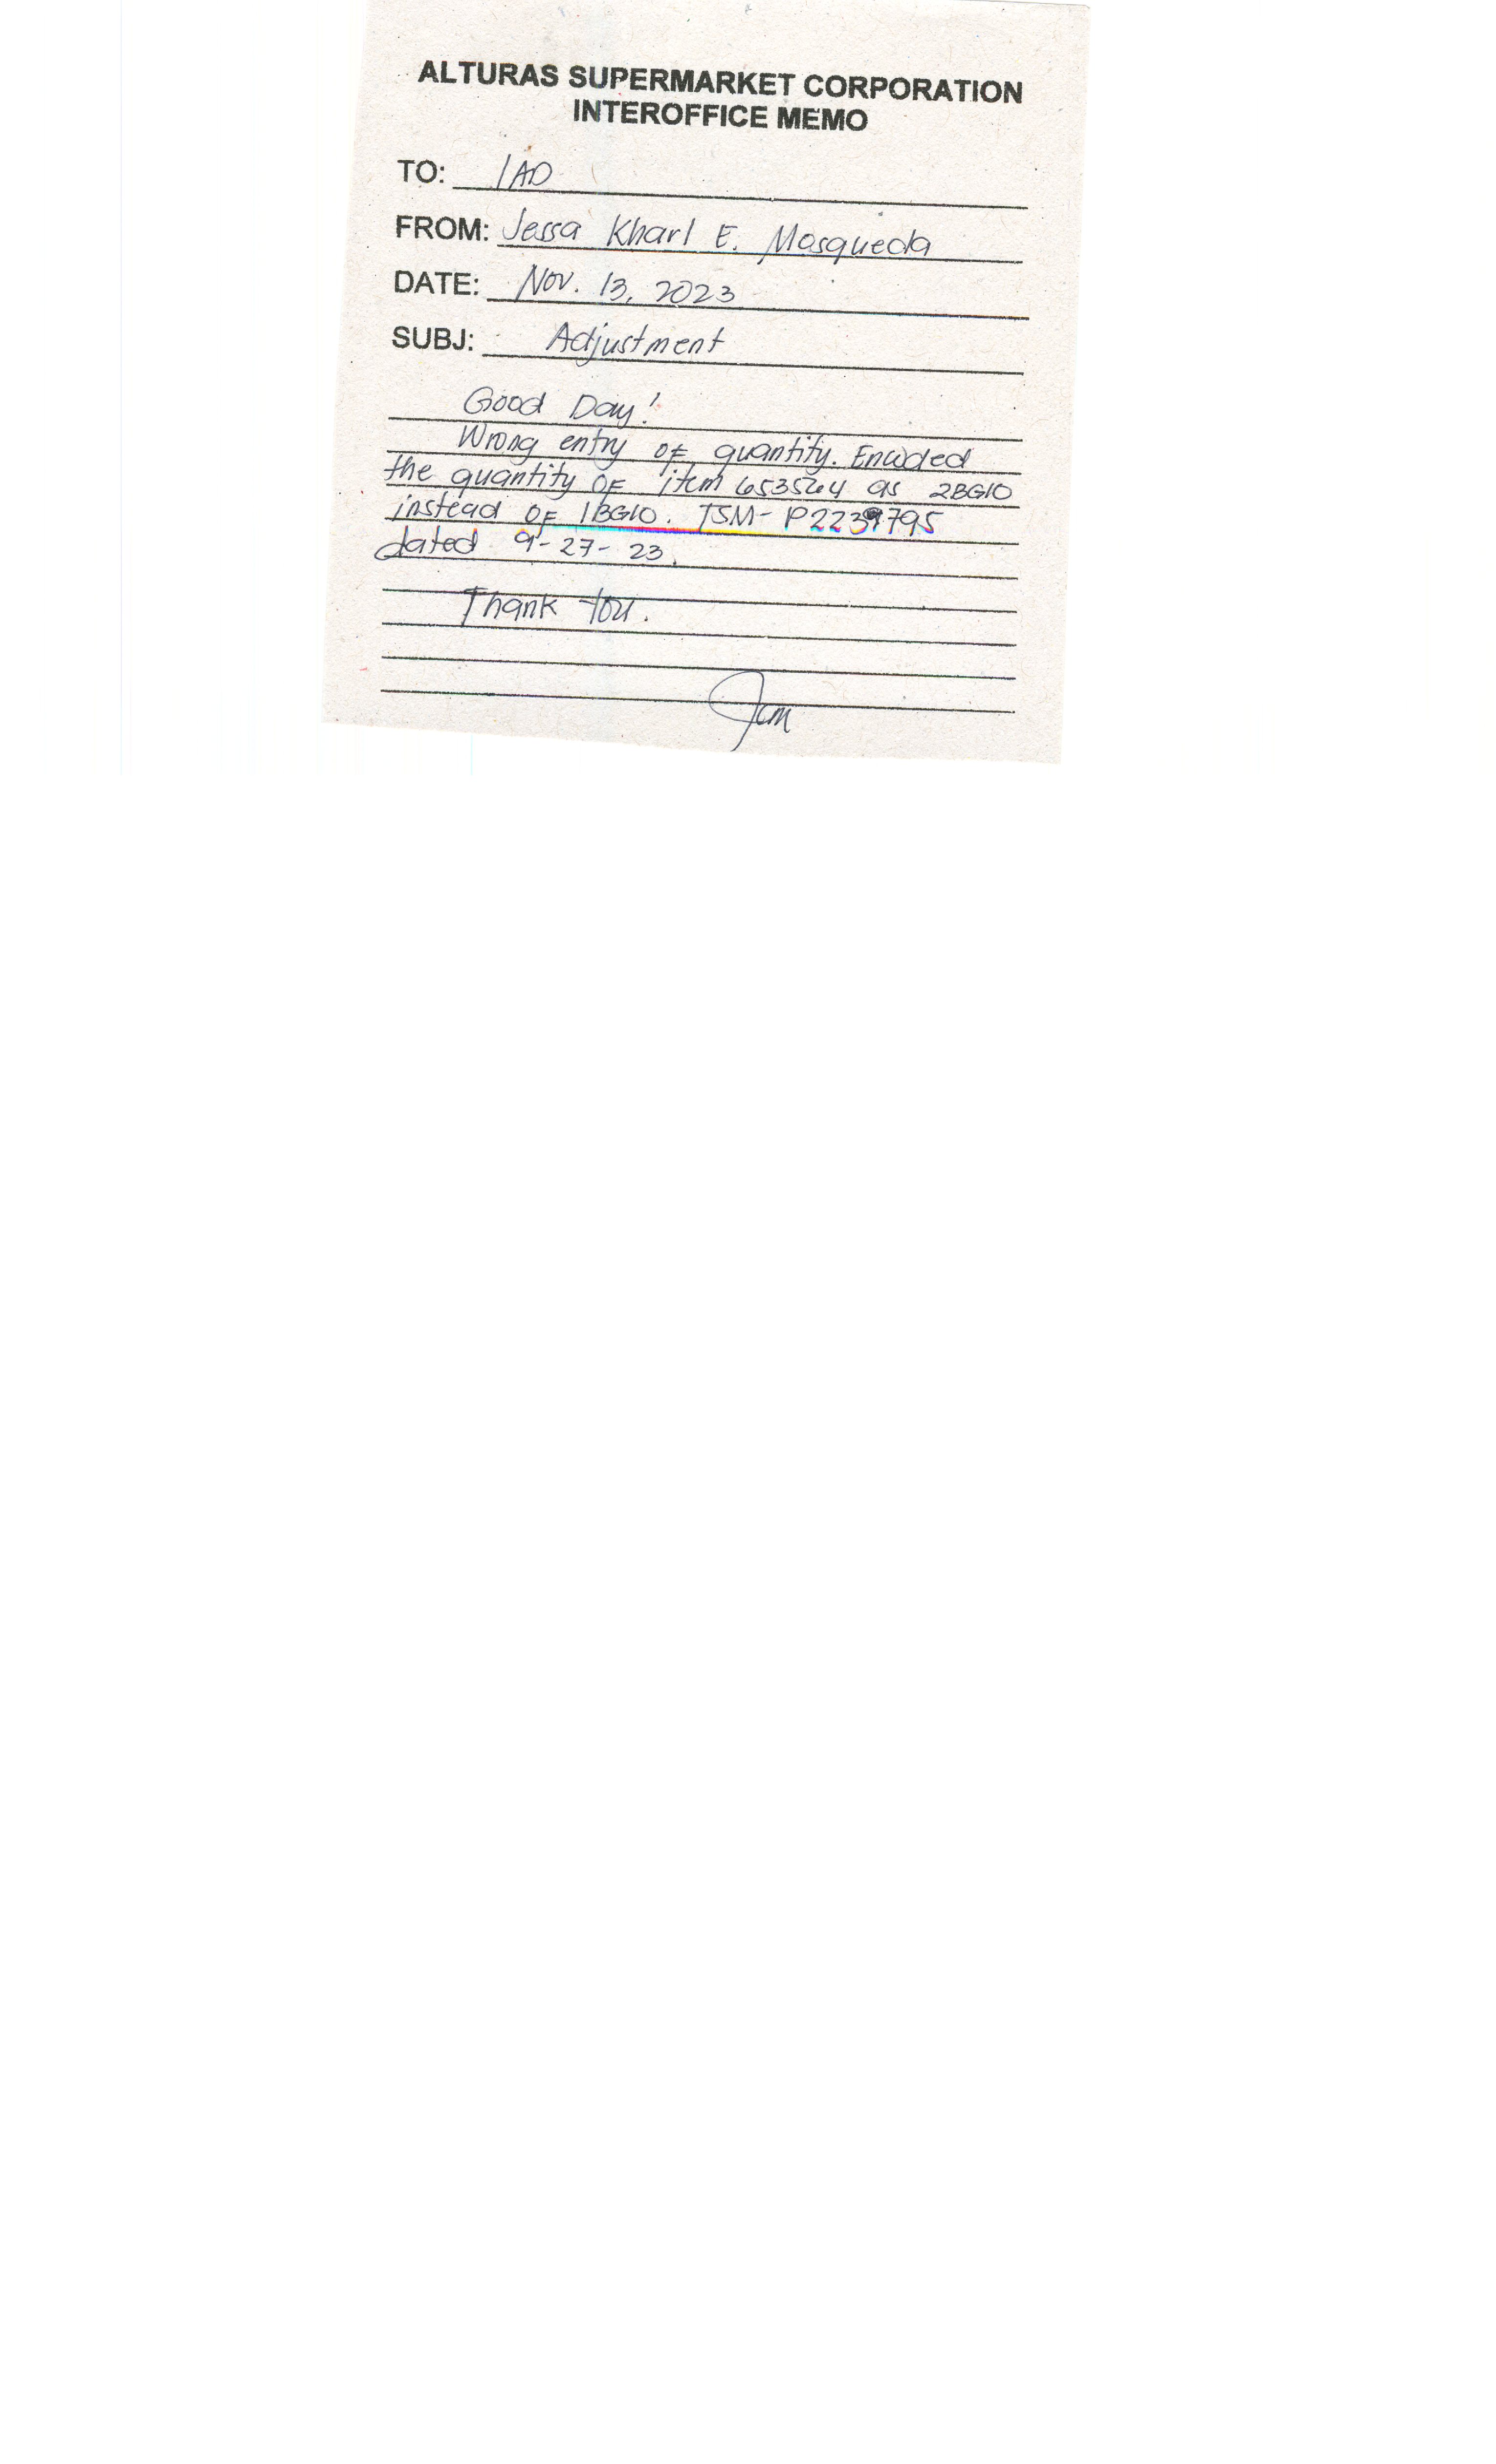 ALTURAS SUPERMARKET CORPORATION
INTEROFFICE MEMO
TO: IAD
FROM: Jessa Kharl E. Mosqueda
DATE: Nov. 13, 2023
SUBJ: Adjustment
Good Day!
Wrong entry of quantity. Encoded
the quantity of item 653564 as 2BG10
instead of 1BG10. TSM- P2239795
dated 9-27-23.
Thank You.